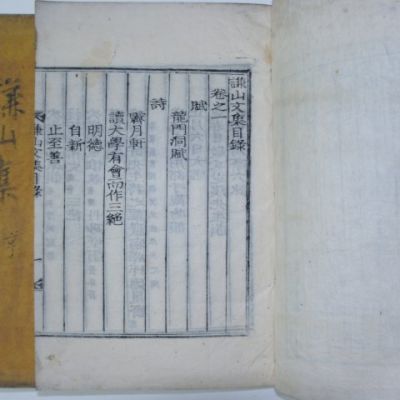 謙山文集目錄
卷之一
賦
龍門洞賦
詩
月軒
讀大學有會而作三絶
明德
自新
止至善
謙山文集目錄
一
謙山集